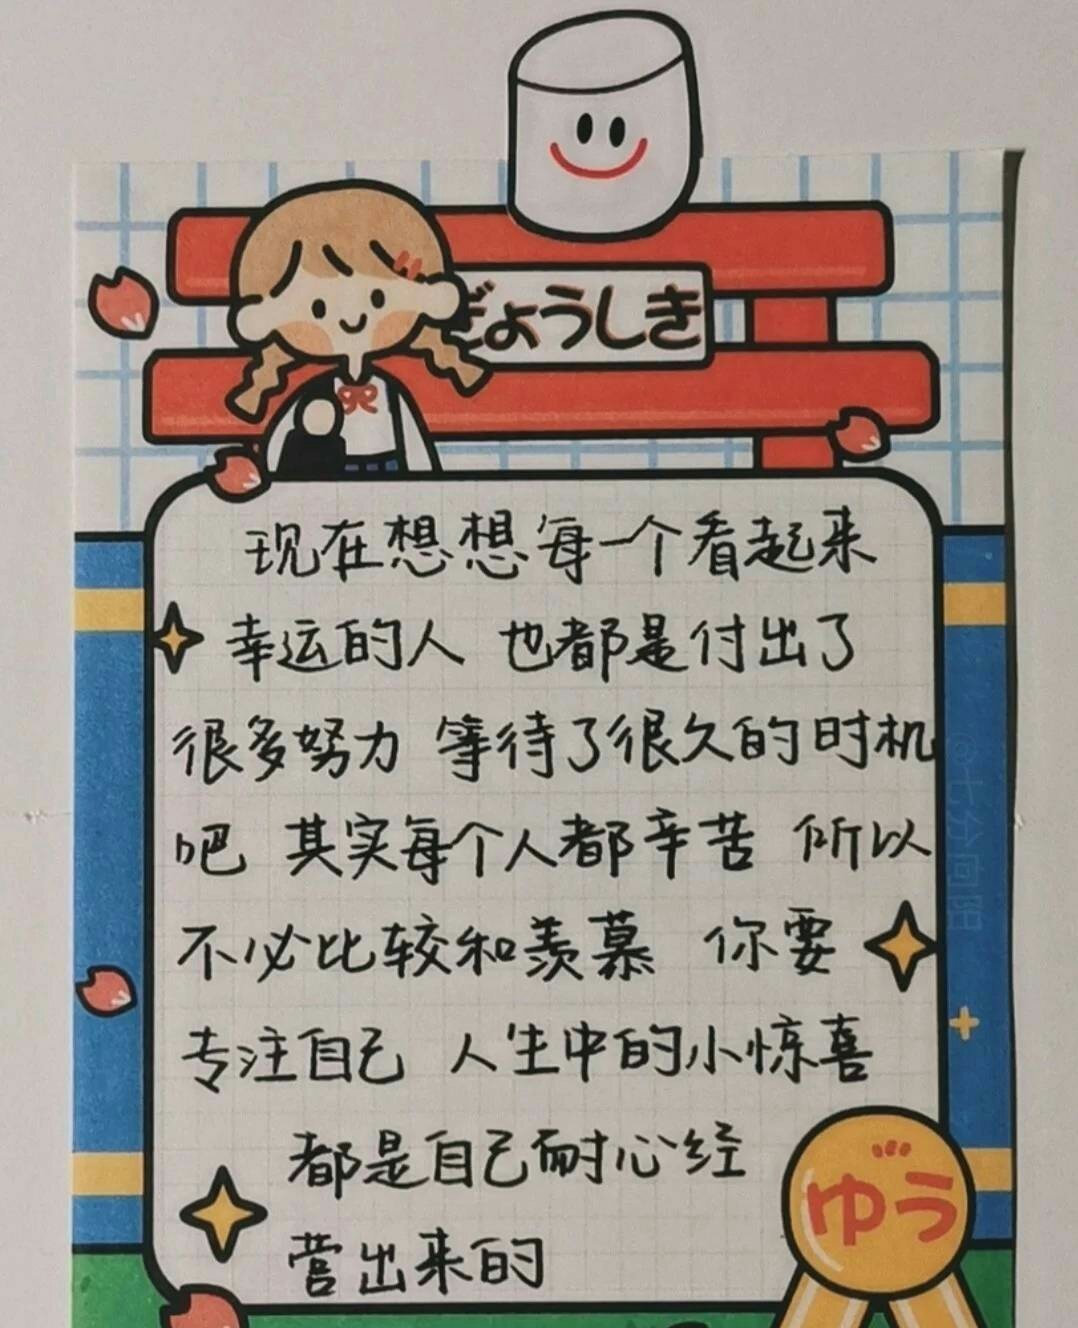 ぎょうしき
现在想想每一个看起来
幸运的人 也都是付出了
很多努力 等待了很久的时机
吧 其实每个人都辛苦 所以
不必比较和羡慕 你要
专注自己 人生中的小惊喜
都是自己耐心经
营出来的
ゆう